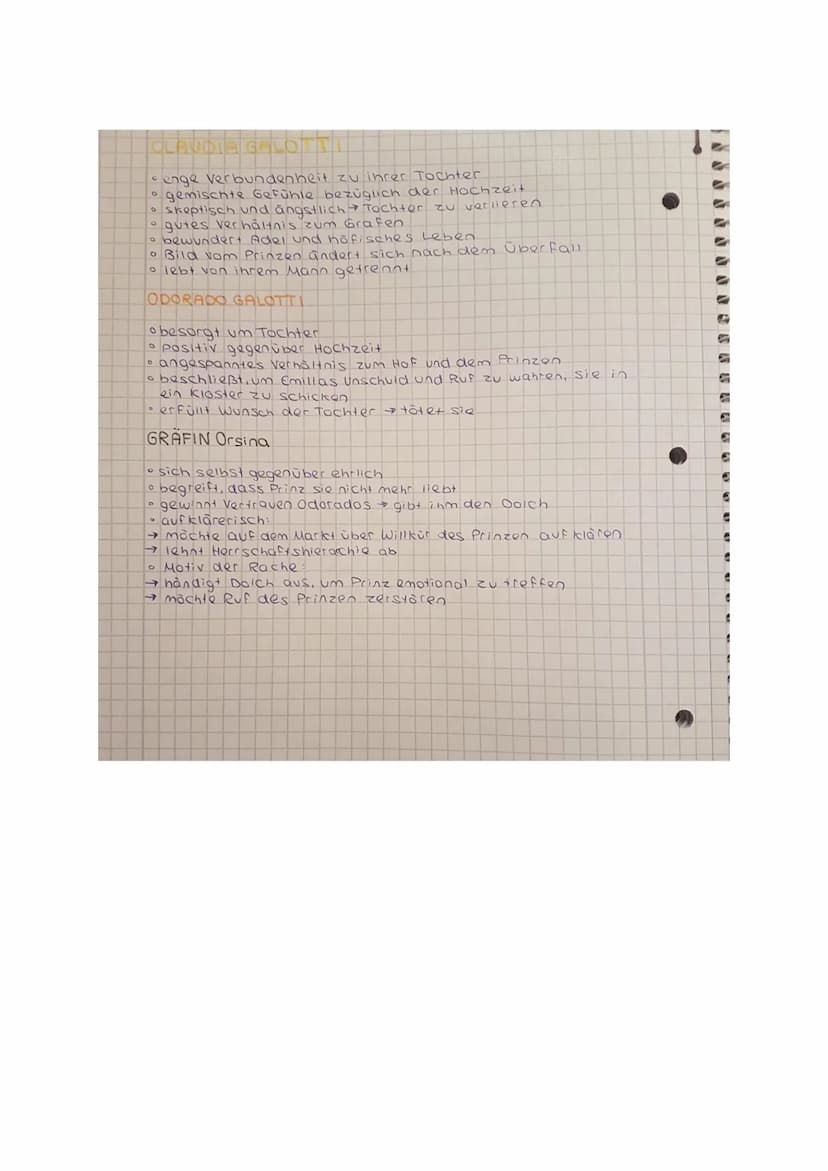 CLAUDIA GALOTTI
◦ enge Verbundenheit zu ihrer Tochter
◦ gemischte Gefühle bezüglich der Hochzeit
◦ skeptisch und ängstlich → Tochter zu verlieren
◦ gutes Verhältnis zum Grafen
◦ bewundert Adel und höfisches Leben
◦ Bild vom Prinzen ändert sich nach dem Überfall
◦ lebt von ihrem Mann getrennt
ODORADO GALOTTI
◦ besorgt um Tochter
◦ positiv gegenüber Hochzeit
◦ angespanntes Verhältnis zum Hof und dem Prinzen
◦ beschließt, um Emilias Unschuld und Ruf zu wahren, sie in
ein Kloster zu schicken
◦ erfüllt Wunsch der Tochter → tötet sie
GRÄFIN Orsina
◦ sich selbst gegenüber ehrlich
◦ begreift, dass Prinz sie nicht mehr liebt
◦ gewinnt Vertrauen Odorados → gibt ihm den Dolch
◦ aufklärerisch:
→ möchte auf dem Markt über Willkür des Prinzen aufklären
→ lehnt Herrschaftshierarchie ab
◦ Motiv der Rache:
→ händigt Dolch aus, um Prinz emotional zu treffen
→ möchte Ruf des Prinzen zerstören